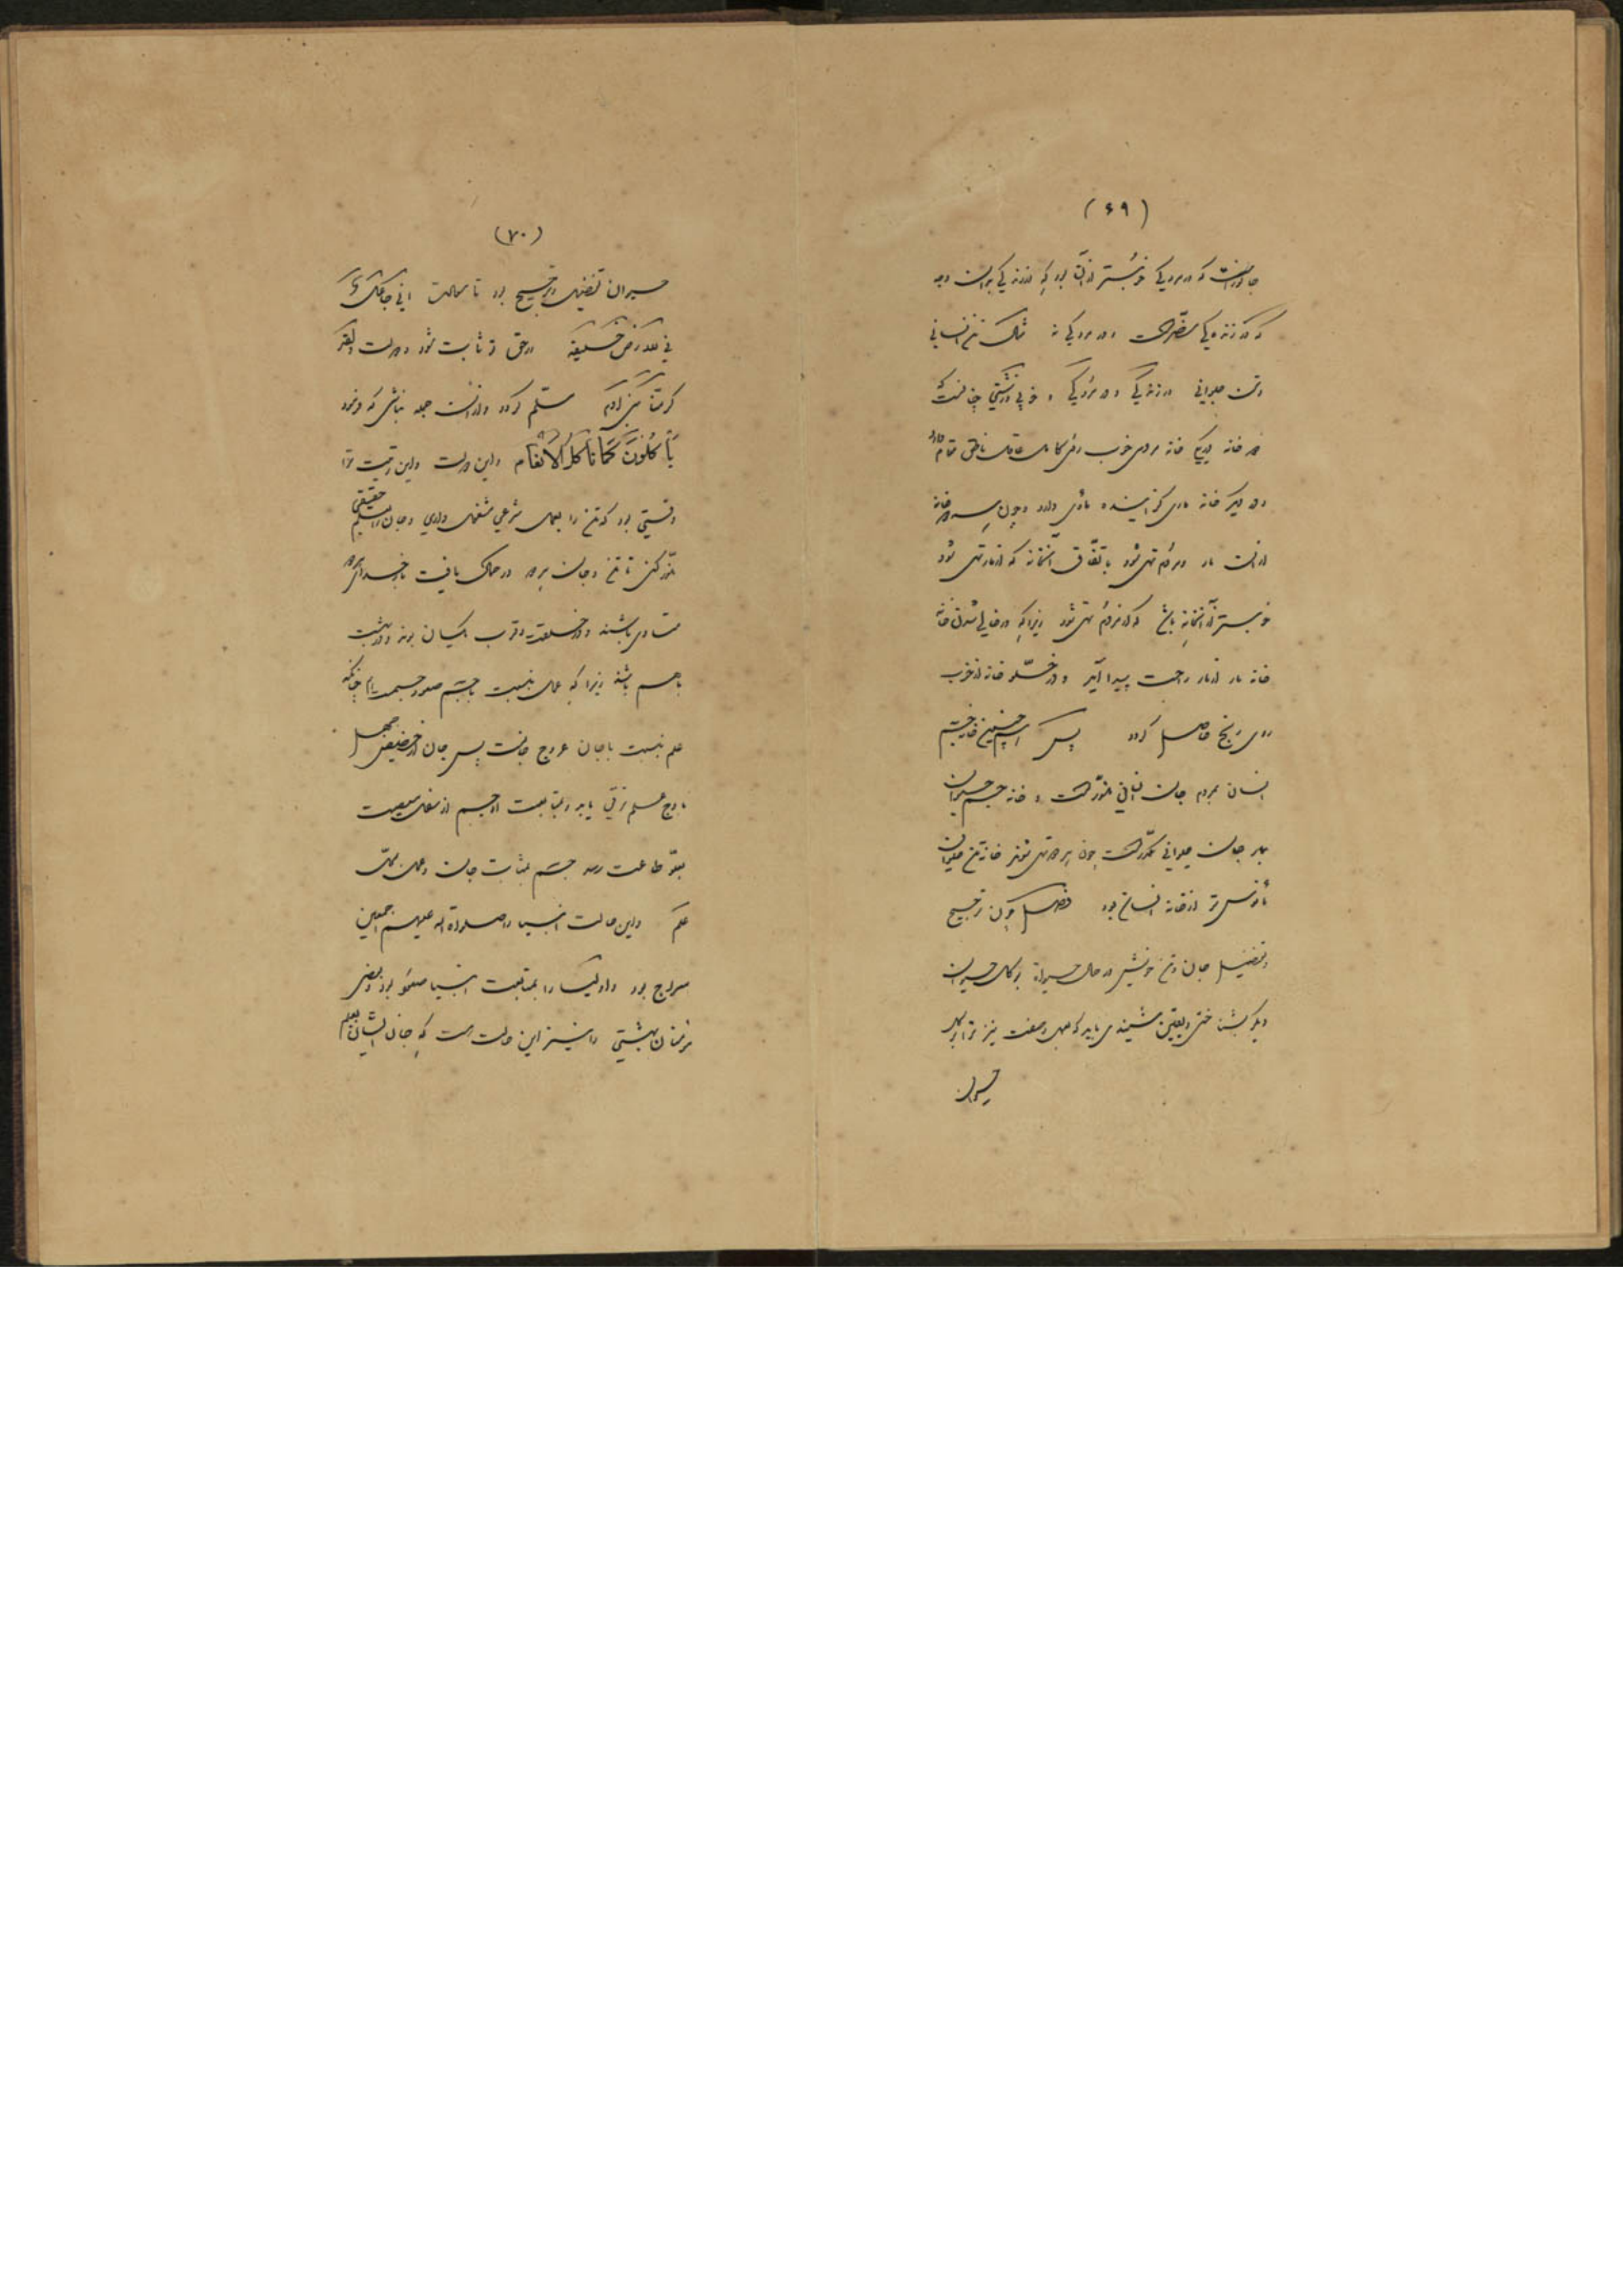 (۶۹)
جانوریست که در مردیکی خوبتر از آن بود که در زندیکی بود
که در زندیکی مضر است و در مردیکی نه مثال تن انسانی
و تن حیوانی در زندیکی و در مردیکی و خوبی و زشتی چنانست که
در خانه یکی خانه مردی خوب روی عاقل ناطق مقام دارد
و در دیگر خانه ماری گزاینده مأوی دارد و چون هر دو خانه
از آن مار و مردم تهی شود باتفاق آنخانه که از مار تهی شود
خوبتر از آنخانه باشد که از مردم تهی شود زیرا که در خالی شدن خانه
خانه مار از مار راحت پیدا آید و در خلو خانه از خوب
روی رنج حاصل گردد پس همچنین خانه جسم
انسان بمردم جان انسانی منور است و خانه جسم حیوان
بمار جان حیوانی مکدر است چون هر دو تهی شوند خانه تن حیوان
مأنوس تر از خانه انسان بود فصل چون ترجیح
و تفضیل جان و تن خویش در حال حیوة بر کل حیوان
دیگر بشناختی و یقین
حیوان
(۷۰)
حیوان تفضیل و ترجیح بود تا رسالت انی جاعلک
فی الارض خلیفة در حق تو ثابت شود و دولت و لقد
کرمنا بنی آدم مسلم گردد و از آن جمله نباشی که فرمود
یَأکُلُونَ کَمَا تَأکُلُ الاَنعَام و این دولت و این رتبت ترا
وقتی بود که تن را بعمل شرعی مشغول داری و جان را بعلم حقیقی
منور کنی تا تن و جان هر دو در
متساوی باشند و در خلعت و قرب یکسان بوند و در بهشت
باهم باشند زیرا که عمل بنسبت با جسم صعود جسمست چنانکه
علم بنسبت با جان عروج جانست پس جان از حضیض جهل
باوج علم ترقی یابد و بمتابعت او جسم از سفل معصیت
بعلو طاعت رسد جسم بمثابت جان و عمل بمحل
علم و این حالت انبیا را صلواة اله علیهم اجمعین
معراج بود و اولیا را بمتابعت انبیا صعود بود و بعضی
مؤمنان بهشتی را نیز این دولت هست که جان ایشان بعلم